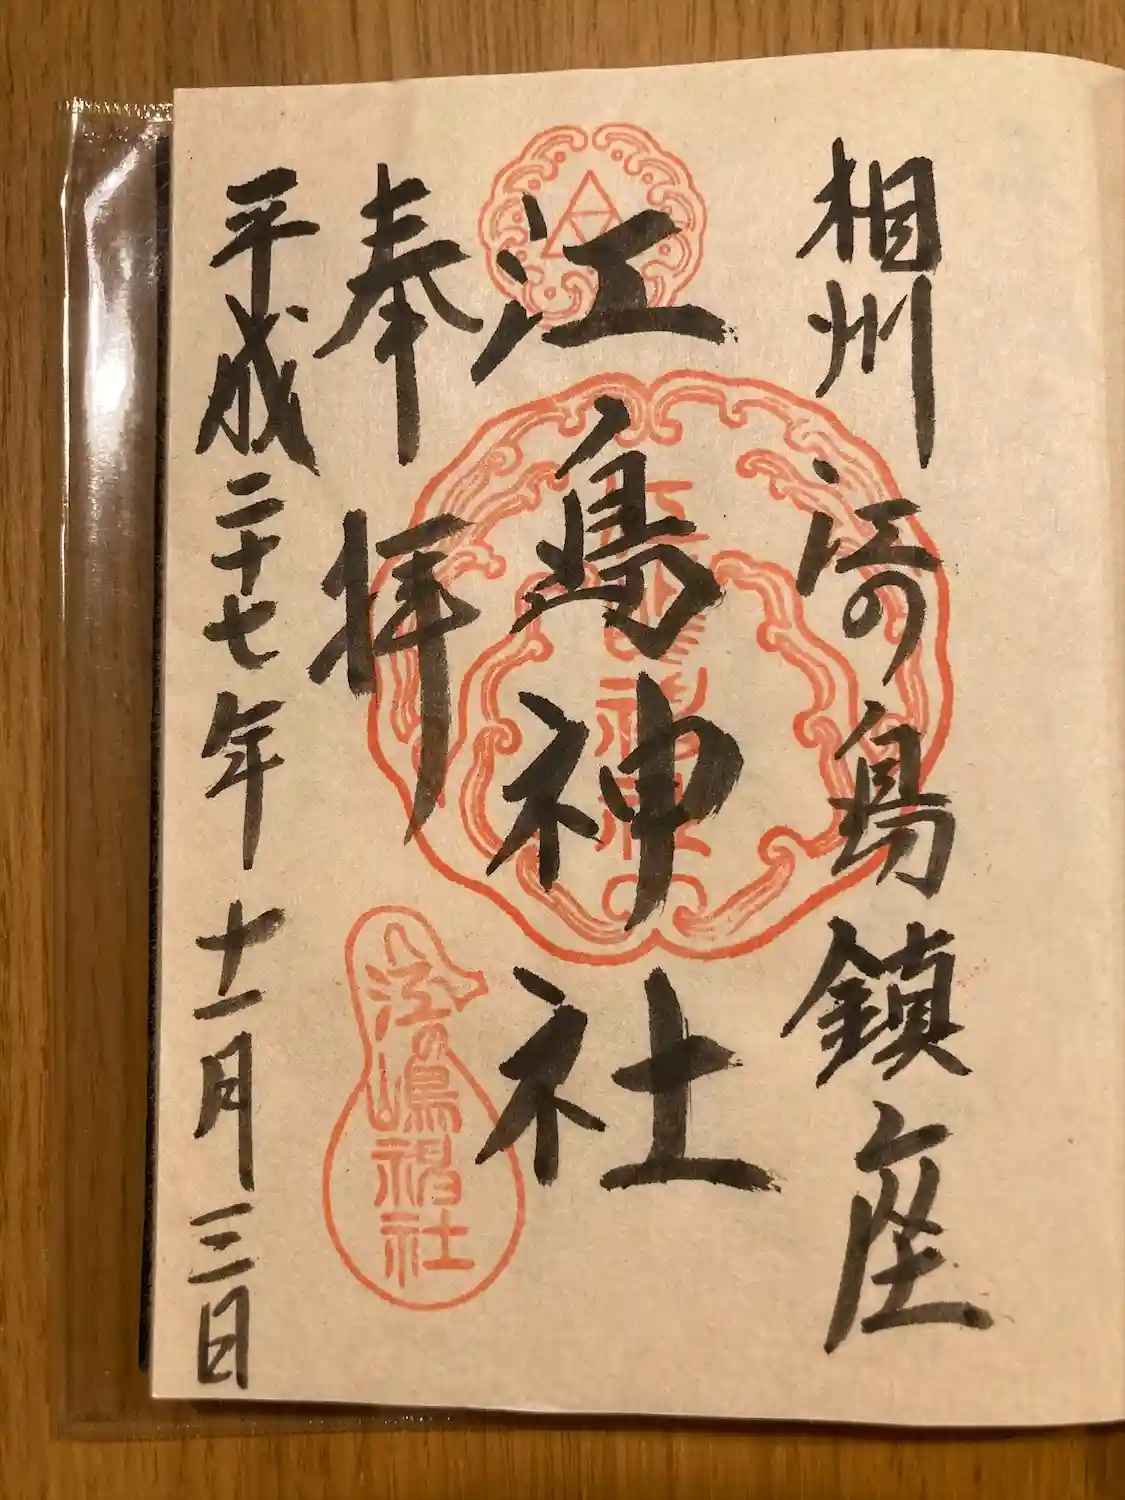 相州江の島鎮座
江島神社
奉拝
江の嶋神社
平成二十七年十一月三日